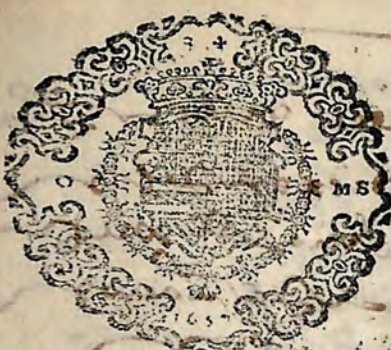 34
O MS
1657